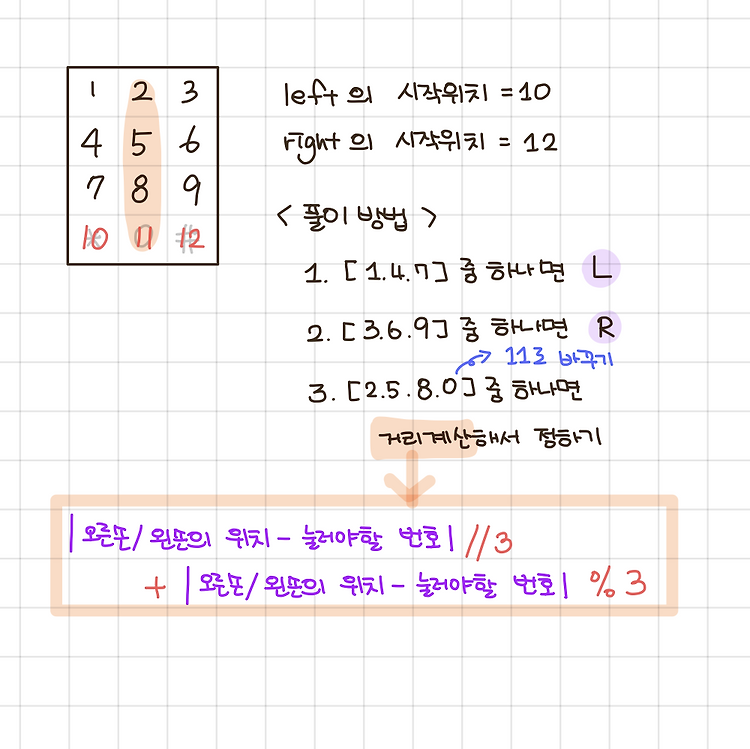 1 2 3
4 5 6
7 8 9
10 11 12
left의 시작위치 = 10
right의 시작위치 = 12
< 풀이 방법 >
1. [1.4.7] 중 하나면 L
2. [3.6.9] 중 하나면 R
11로 바꾸기
3. [2.5.8.0] 중 하나면
거리계산해서 정하기
|오른손/왼손의 위치 - 눌러야할 번호| //3
+ |오른손/왼손의 위치 - 눌러야할 번호| % 3